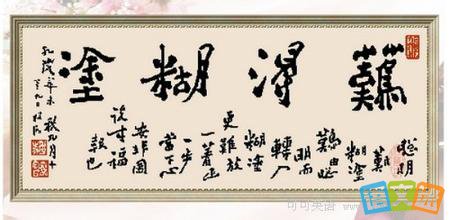 難得糊塗
聰明
難
糊塗
難由聰
明而
轉入
糊塗
更難放
一著退
一步
當下心
安非圖
後來福
報也
乾隆辛未秋九月十
有九日板橋
可可英语
语文迷